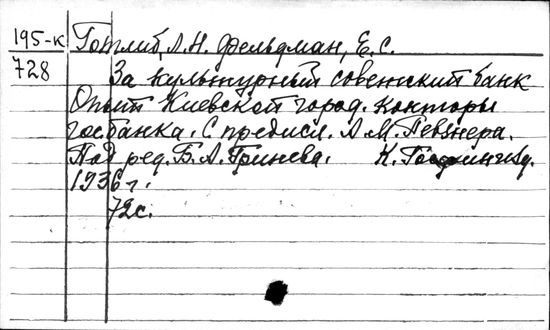 195-к Готлиб, Л.Н. Фельдман, Е.С.
728 За культурный советский банк
Опыт Киевской город. конторы
госбанка. С предисл. А.М. Певзнера.
Под ред. Б.А. Гринева. К.
1936 г.
72с.